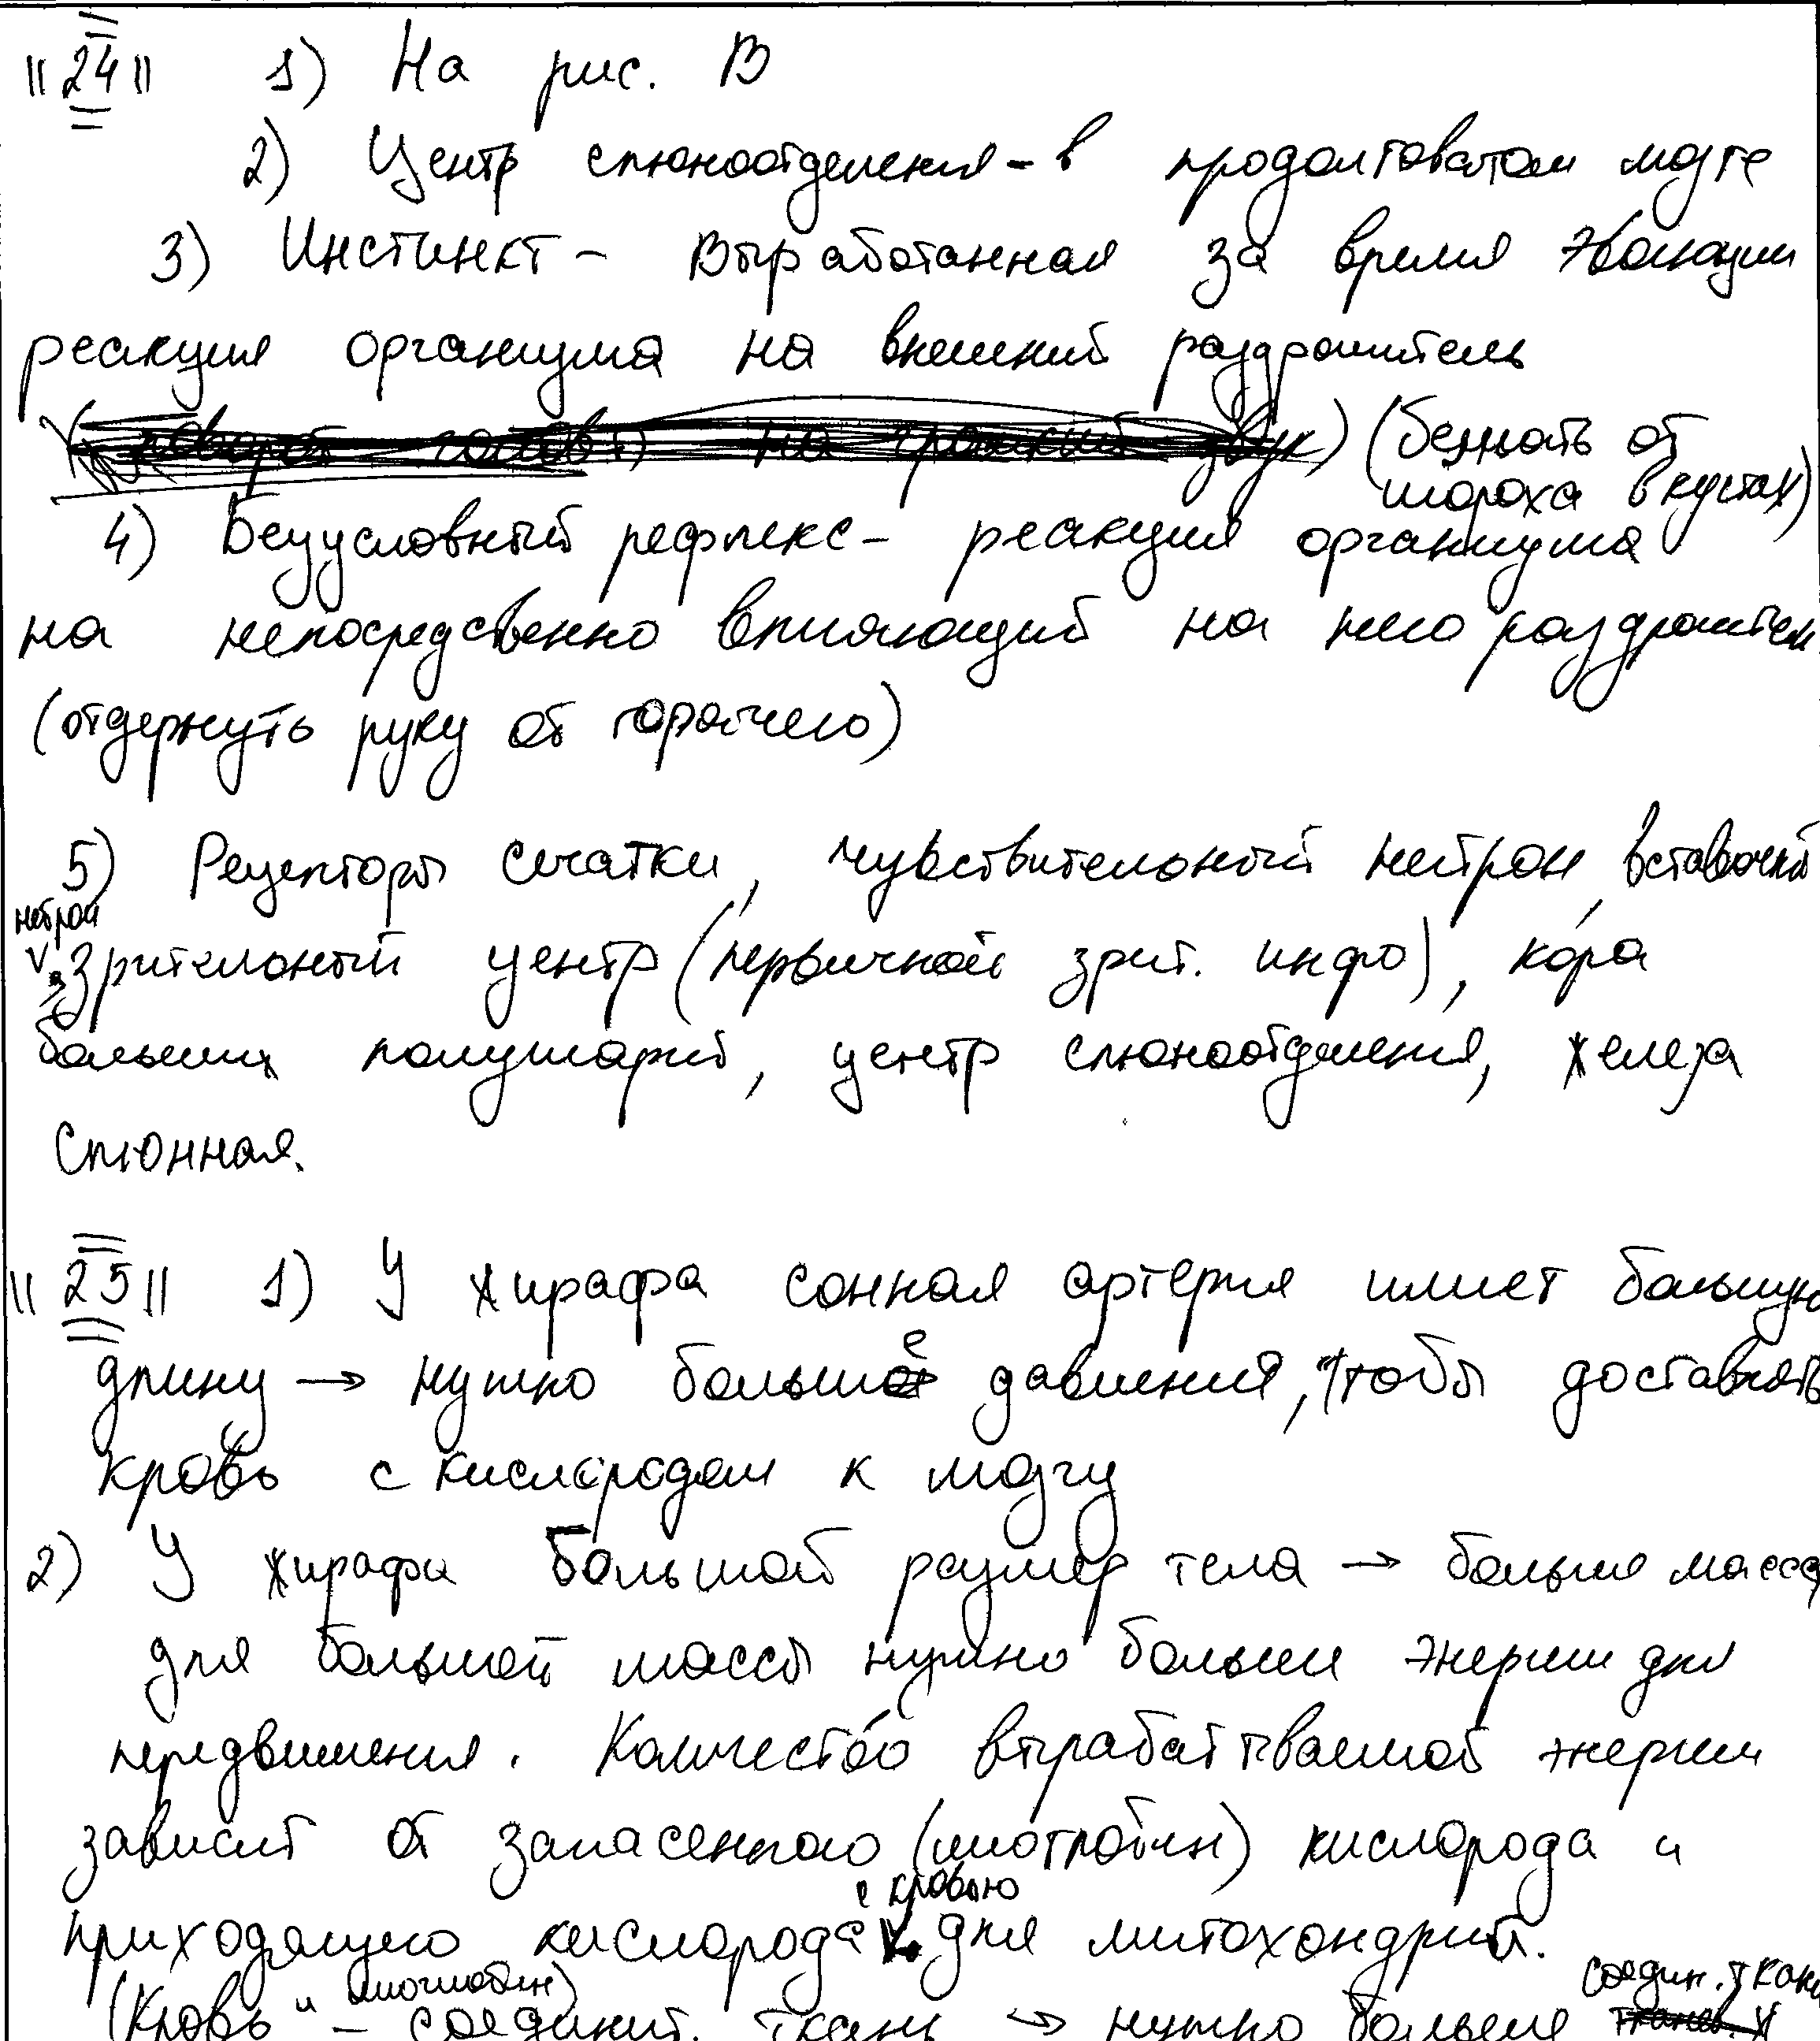 24 1) На рис. В
2) Центр слюноотделения - в продолговатом мозге
3) Инстинкт - выработанная за время эволюции
реакция организма на внешний раздражитель
(поворот головы на громкий звук) (бежать от
шороха в кустах)
4) Безусловный рефлекс - реакция организма
на непосредственно влияющий на него раздражитель
(отдернуть руку от горячего)
5) Рецепторы сетчатки, чувствительный нейрон, вставочный
нейрон
зрительный центр (первичной зрит. инфо), кора
больших полушарий, центр слюноотделения, железа
слюнная.
25 1) У жирафа сонная артерия имеет большую
длину → нужно больше давления, чтобы доставлять
кровь с кислородом к мозгу
2) У жирафа большой размер тела → больше масса,
для большей массы нужно больше энергии для
передвижения. Количество вырабатываемой энергии
зависит от запасенного (миоглобин) кислорода и
с кровью
приходящего кислорода для митохондрий.
и миоглобин) соедин. ткани
(Кровь - соединит. ткань → нужно больше